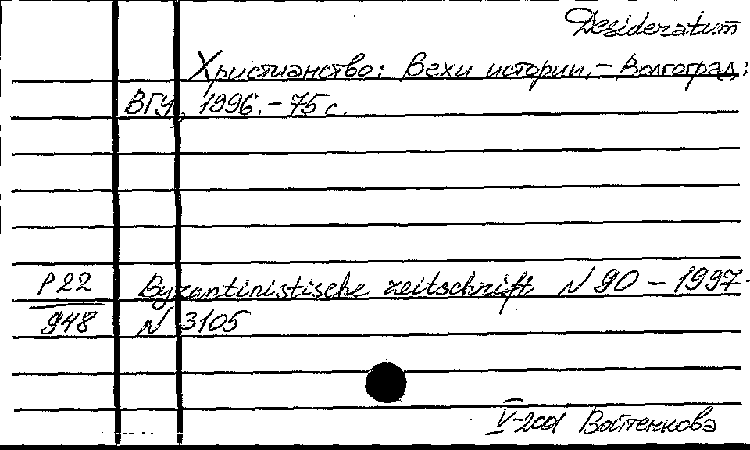 Desideratum
Христианство: Вехи истории. - Волгоград:
ВГУ, 1996. - 75 с.
P22 Byzantinistische zeitschrift N 90 - 1997.
948 N 3105
V-2001 Войтенкова